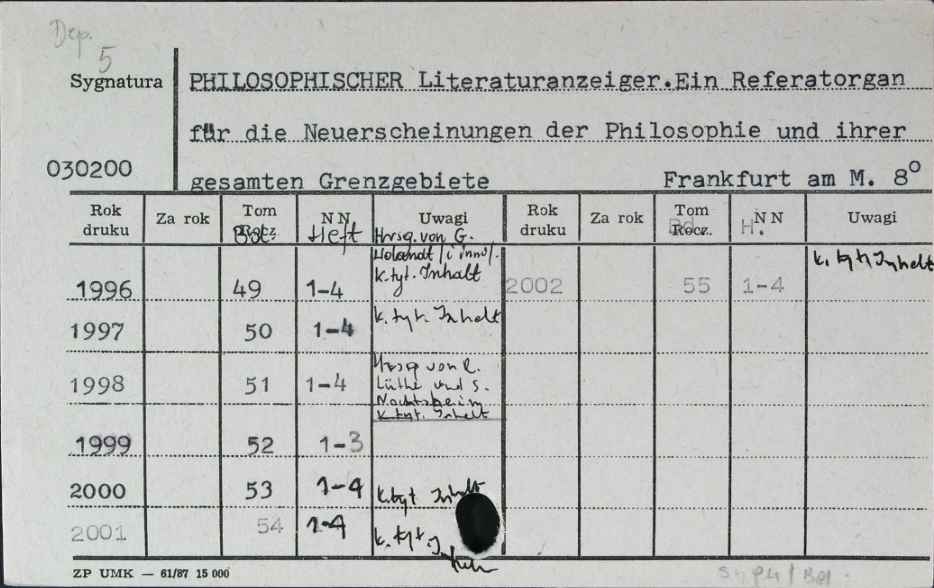 Dep.
5
Sygnatura
PHILOSOPHISCHER Literaturanzeiger.Ein Referatorgan
für die Neuerscheinungen der Philosophie und ihrer
030200
gesamten Grenzgebiete Frankfurt am M. 8°
Rok druku Za rok Tom Rocz. NN Uwagi Rok druku Za rok Tom Rocz. NN Uwagi
Heft Bd. H.
Hrsg. von G.
k. tyt. Inhalt
1996 49 1-4 2002 55 1-4 k. tyt. Inhalt
1997 50 1-4 k. tyt. Inhalt
Hrsg von R.
1998 51 1-4 Lüthe und S.
Nachtsheim
k. tyt. Inhalt
1999 52 1-3
2000 53 1-4 k. tyt Inhalt
2001 54 1-4 k. tyt.
ZP UMK — 61/87 15 000